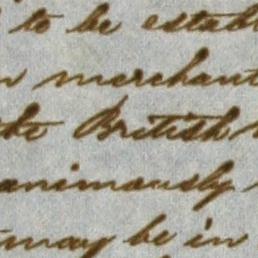 to be estab
merchant
the British
animously
may be in